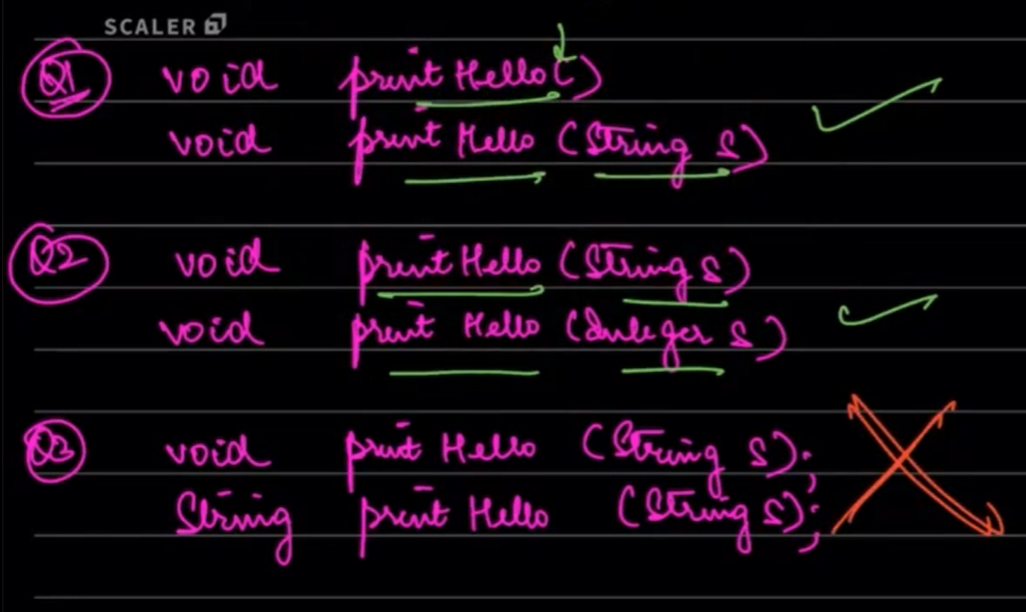 SCALER
Q1 void printHello()
void printHello (String s)
Q2 void printHello (String s)
void print Hello (Integer s)
Q3 void print Hello (String s);
String print Hello (String s);